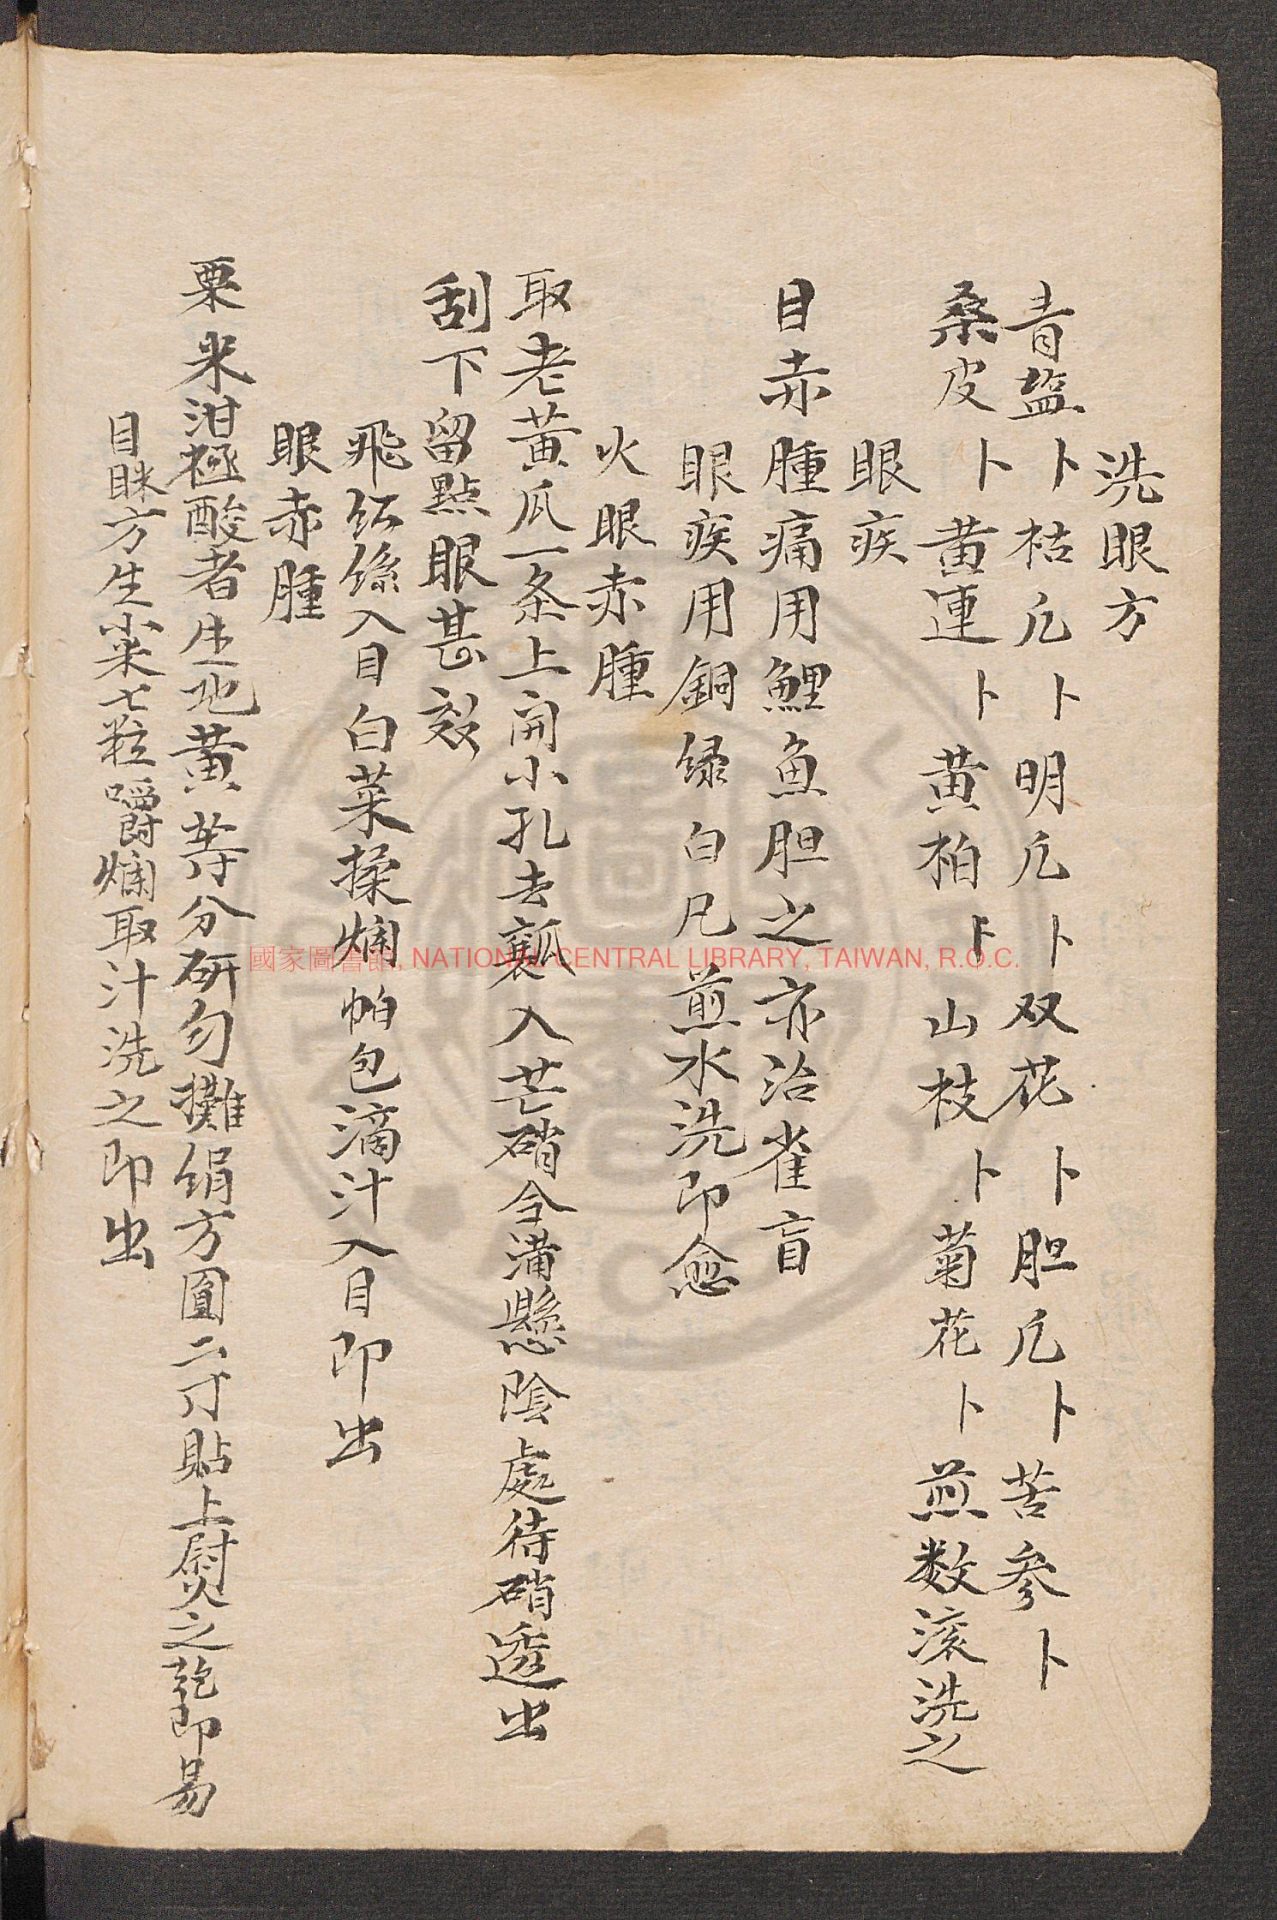 洗眼方
青塩卜枯凢卜明凢卜双花卜胆凢卜苦参卜
桑皮卜黄連卜黄柏卜山枝卜菊花卜煎数滚洗之
眼疾
目赤腫痛用鯉魚胆之亦治雀盲
眼疾用銅绿白凡煎水洗即愈
火眼赤腫
取老黄瓜一条上開小孔去瓤入芒硝令滿懸陰處待硝透出
刮下留點眼甚效
飛紅絲入目白菜揉爛帕包滴汁入目即出
眼赤腫
粟米泔極酸者生地黄等分研匀攤绢方圓二寸貼上熨之乾即易
目眯方生小米七粒嚼爛取汁洗之即出
國家圖書館, NATIONAL CENTRAL LIBRARY, TAIWAN, R.O.C.